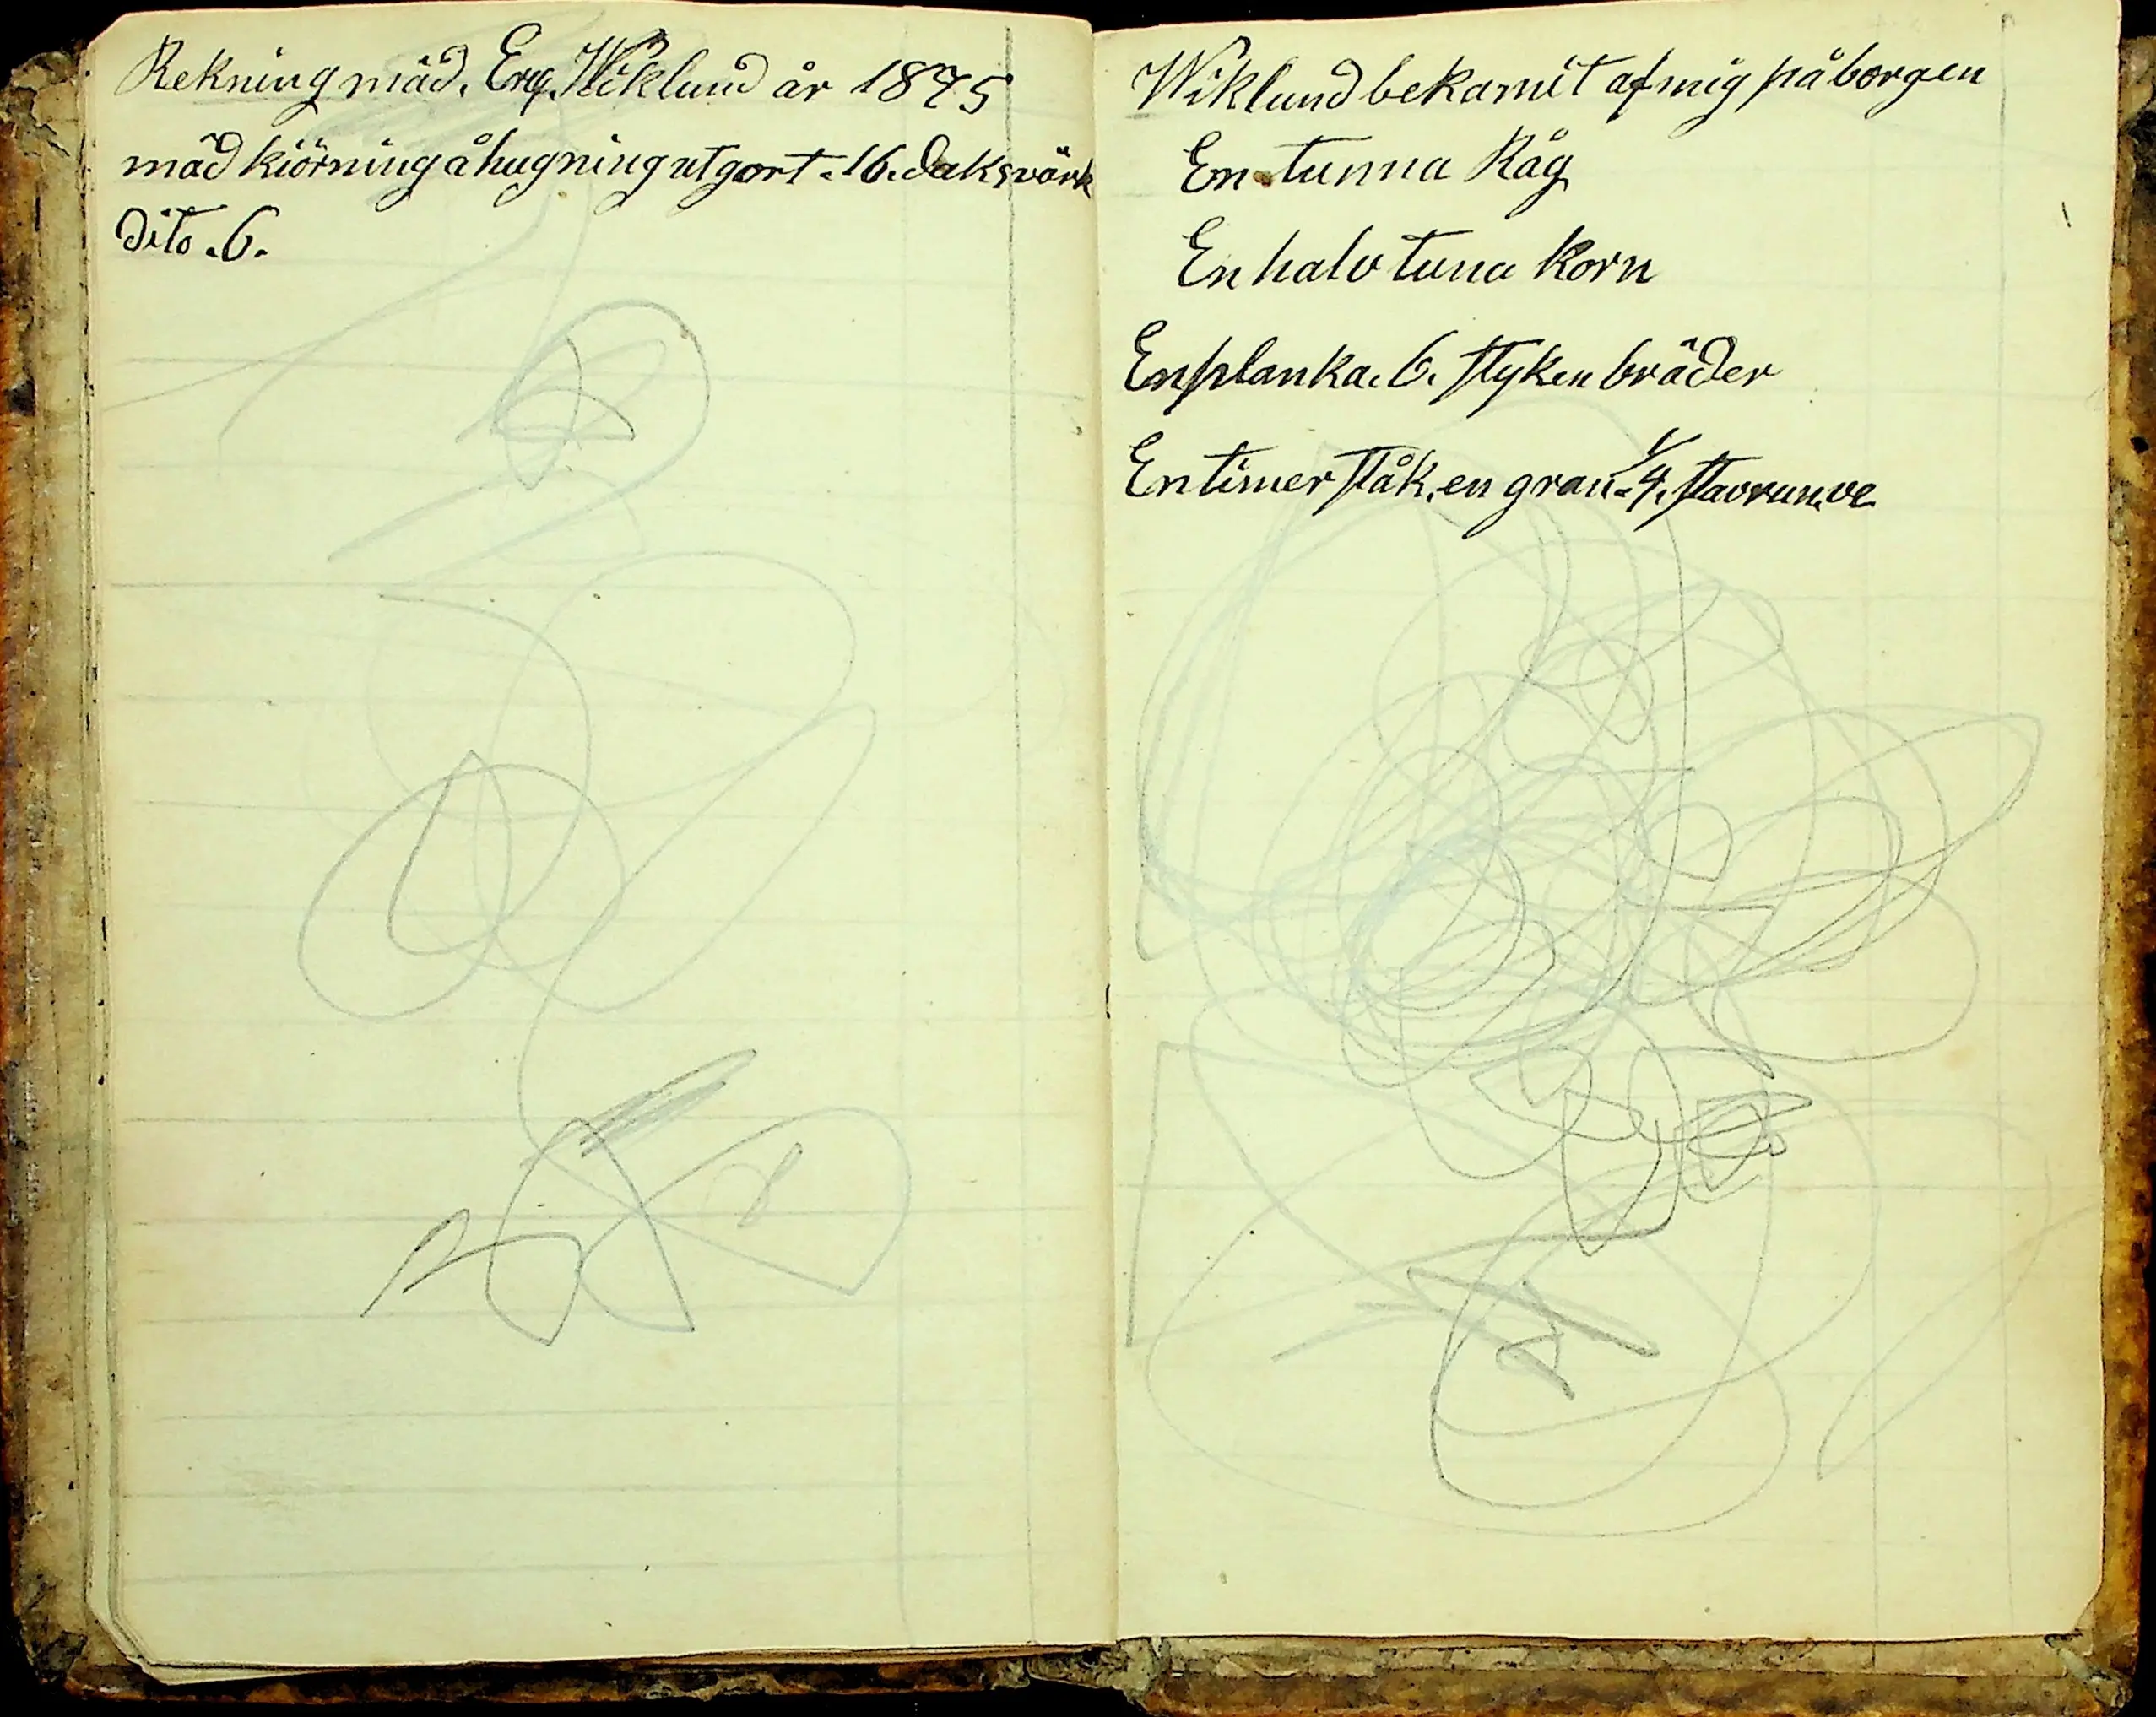 Rekning mäd. Erq. Wiklund år 1875
mäd kiörning å hugning utgort. 16. daksvärk
dito. 6.
Wiklund bekamit af mig på borgen
En tunna Råg
En halv tuna Korn
En planka. 6. styken bräder
En timer ståk, en gran